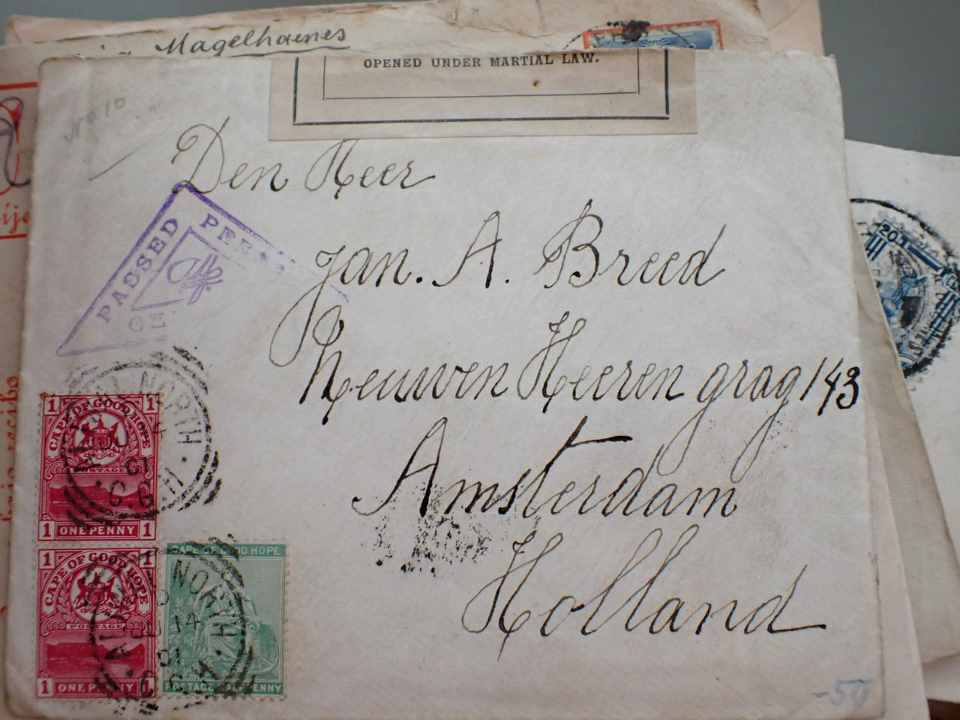 Magelhaenes
OPENED UNDER MARTIAL LAW.
No 10
Den Heer
PASSED
Jan. A. Breed
Nieuwen Heeren grag 143
Amsterdam
Holland
NORTH
1 1
CAPE OF GOOD HOPE
POSTAGE
1 ONE PENNY 1
1 1
CAPE OF GOOD HOPE
POSTAGE
1 ONE PENNY 1
CAPE OF GOOD HOPE
NORTH
14
01
POSTAGE PENNY
-50